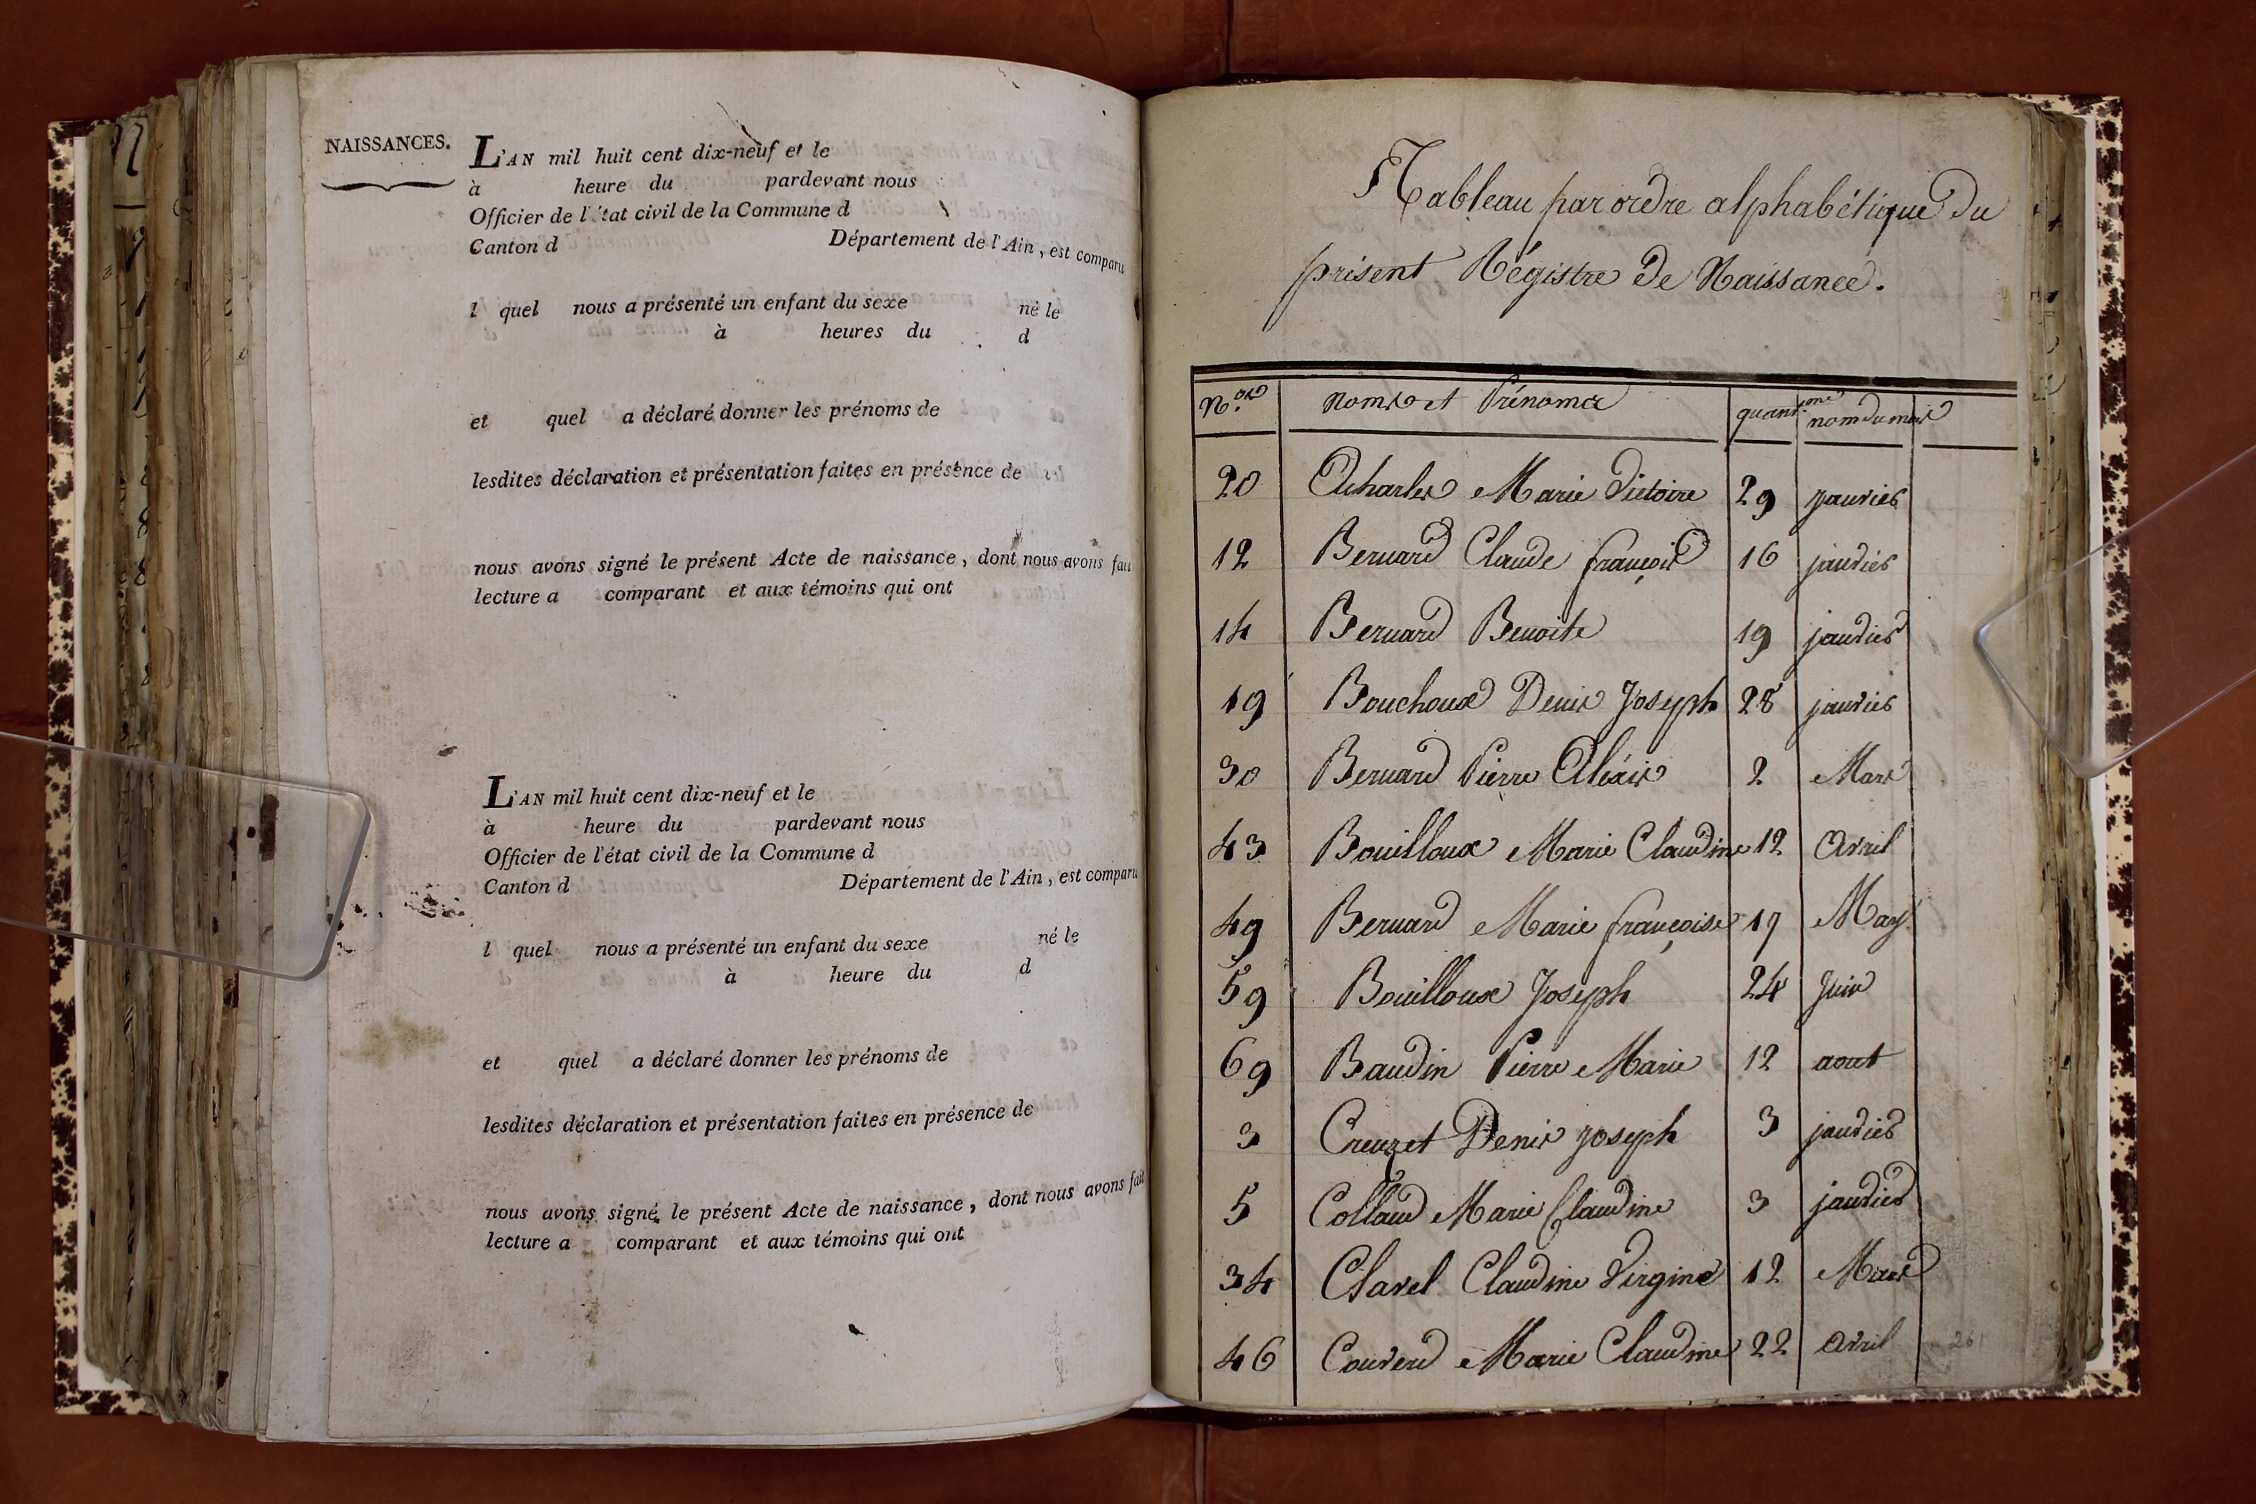 NAISSANCES.
L'AN mil huit cent dix-neuf et le
à heure du pardevant nous
Officier de l'état civil de la Commune d
Canton d Département de l'Ain, est comparu
l quel nous a présenté un enfant du sexe né le
à heures du d
et quel a déclaré donner les prénoms de
lesdites déclaration et présentation faites en présence de
nous avons signé le présent Acte de naissance, dont nous avons fait
lecture a comparant et aux témoins qui ont
L'AN mil huit cent dix-neuf et le
à heure du pardevant nous
Officier de l'état civil de la Commune d
Canton d Département de l'Ain, est comparu
l quel nous a présenté un enfant du sexe né le
à heure du d
et quel a déclaré donner les prénoms de
lesdites déclaration et présentation faites en présence de
nous avons signé le présent Acte de naissance, dont nous avons fait
lecture a comparant et aux témoins qui ont
Tableau par ordre alphabétique du
présent Régistre de Naissance.
N.os noms et Prénoms quant.me nom du mois
20 Acharles Marie Victoire 29 janvier
12 Bernard Claude françois 16 janvier
14 Bernard Benoite 19 janvier
19 Bouchoux Denis Joseph 28 janvier
30 Bernard Pierre Aléxis 2 Mars
43 Bouilloux Marie Claudine 12 Avril
49 Bernard Marie françoise 19 May
59 Bouilloux Joseph 24 Juin
69 Baudin Pierre Marie 12 aout
3 Creuzet Denis Joseph 3 janvier
5 Colland Marie Claudine 3 janvier
34 Clavel Claudine Virgine 12 Mars
46 Convend Marie Claudine 22 Avril
261